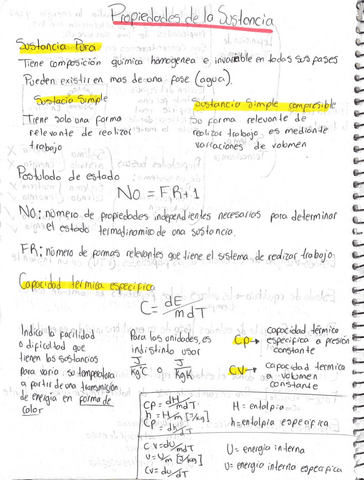 Propiedades de la Sustancia
Sustancia Pura
Tiene composición química homogenea e invariable en todas sus fases
Pueden existir en mas de una fase (agua).
Sustacia Simple
Tiene solo una forma
relevante de realizar
trabajo
Sustancia Simple compresible
Su forma relevante de
realizar trabajo es mediante
variaciones de volumen
Postulado de estado
NO = FR+1
NO: número de propiedades independientes necesarios para determinar
el estado termodinamico de una sustancia.
FR: número de formas relevantes que tiene el sistema de realizar trabajo
Capacidad térmica especifica
C = dE/mdT
Indica la facilidad
o dificultad que
tienen las sustancias
para variar su temperatura
a partir de una transmisión
de energía en forma de
calor
Para las unidades, es
indistinto usar
J/KgC o J/KgK
Cp → capacidad térmica
especifica a presión
constante
Cv → capacidad termica
a volumen
constante
Cp = dH/mdT
h = H/m [J/kg]
Cp = dh/dT
H = entalpia
h = entalpia especifica
Cv = dU/mdT
u = U/m [J/kg]
Cv = du/dT
U = energía interna
u = energía interna especifica